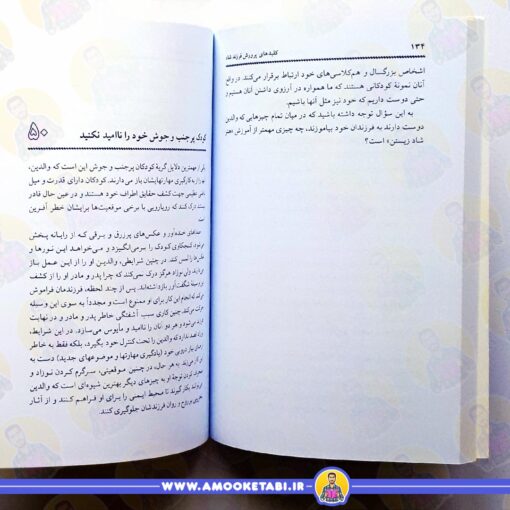 ۱۳۴
کلیدهای پرورش فرزند شاد
اشخاص بزرگسال و هم‌کلاسی‌های خود ارتباط برقرار می‌کنند. در واقع
آنان نمونهٔ کودکانی هستند که ما همواره در آرزوی داشتن آنان هستیم و
حتی دوست داریم که خود نیز مثل آنها باشیم.
به این سؤال توجه داشته باشید که در میان تمام چیزهایی که والدین
دوست دارند به فرزندان خود بیاموزند، چه چیزی مهمتر از آموزش «هنر
شاد زیستن» است؟
۵۰
کودک پرجنب و جوش خود را ناامید نکنید
از مهمترین دلایل گریهٔ کودکان پرجنب و جوش این است که والدین،
را از به کارگیری مهارتهایشان باز می‌دارند. کودکان دارای قدرت و میل
جهت کشف حقایق اطراف خود هستند و در عین حال قادر
درک کنند که رویارویی با برخی موقعیت‌ها برایشان خطر آفرین
صداهای و عکس‌های پرزرق و برقی که از رایانه پخش
کنجکاوی کودک را برمی‌انگیزد و می‌خواهد این نورها و
را لمس کند. در چنین شرایطی، والدین او را از این عمل باز
ولی نوزاد هرگز درک نمی‌کند که چرا پدر و مادر او را از کشف
وسیله شگفت‌آور بازداشته‌اند. پس از چند لحظه، فرزندتان فراموش
که انجام این کار برای او ممنوع است و مجدداً به سوی این وسیله
چنین کاری سبب آشفتگی خاطر پدر و مادر و در نهایت
و هر دو آنان را ناامید و مأیوس می‌سازد. در این شرایط،
ندارد که والدین را تحت کنترل خود بگیرد، بلکه فقط به خاطر
نیاز درونی خود (یادگیری مهارتها و موضوعهای جدید) دست به
کار می‌زند. به هر حال، در چنین موقعیتی، سرگرم کردن نوزاد و
کردن توجهٔ او به چیزهای دیگر بهترین شیوه‌ای است که والدین
بکار گیرند تا محیط ایمنی را برای او فراهم کنند و از آثار
بر روح و روان فرزندشان جلوگیری کنند.
WWW.AMOOKETABI.IR